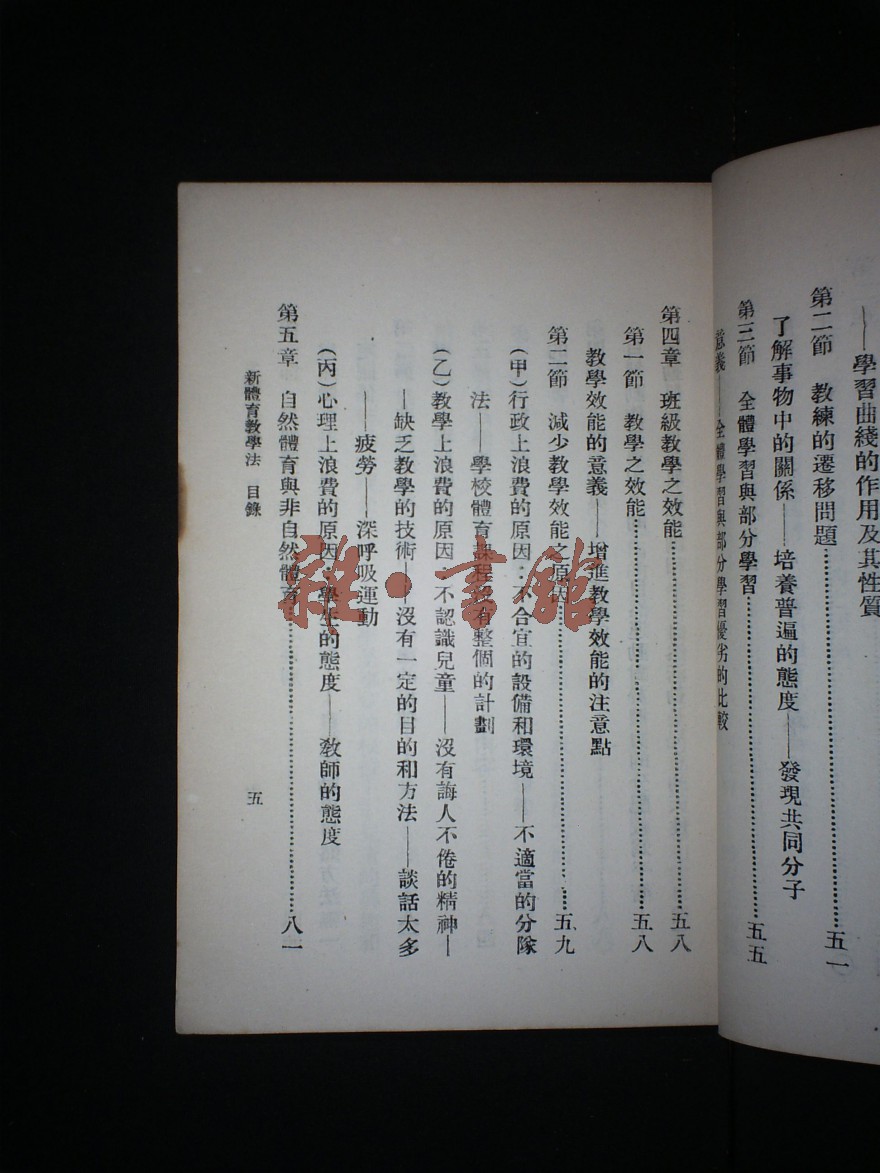 ——學習曲綫的作用及其性質
第二節　教練的遷移問題……………………五一
了解事物中的關係——培養普遍的態度——發現共同分子
第三節　全體學習與部分學習……………………五五
意義——全體學習與部分學習優劣的比較
第四章　班級教學之效能……………………五八
第一節　教學之效能……………………五八
教學效能的意義——增進教學效能的注意點
第二節　減少教學效能之原因……………………五九
(甲)行政上浪費的原因：不合宜的設備和環境——不適當的分隊
法——學校體育課程沒有整個的計劃
(乙)教學上浪費的原因　不認識兒童——沒有誨人不倦的精神—
—缺乏教學的技術——沒有一定的目的和方法——談話太多
——疲勞——深呼吸運動
(丙)心理上浪費的原因：學生的態度——教師的態度
第五章　自然體育與非自然體育……………………八一
新體育教學法　目錄
五
雜·書館